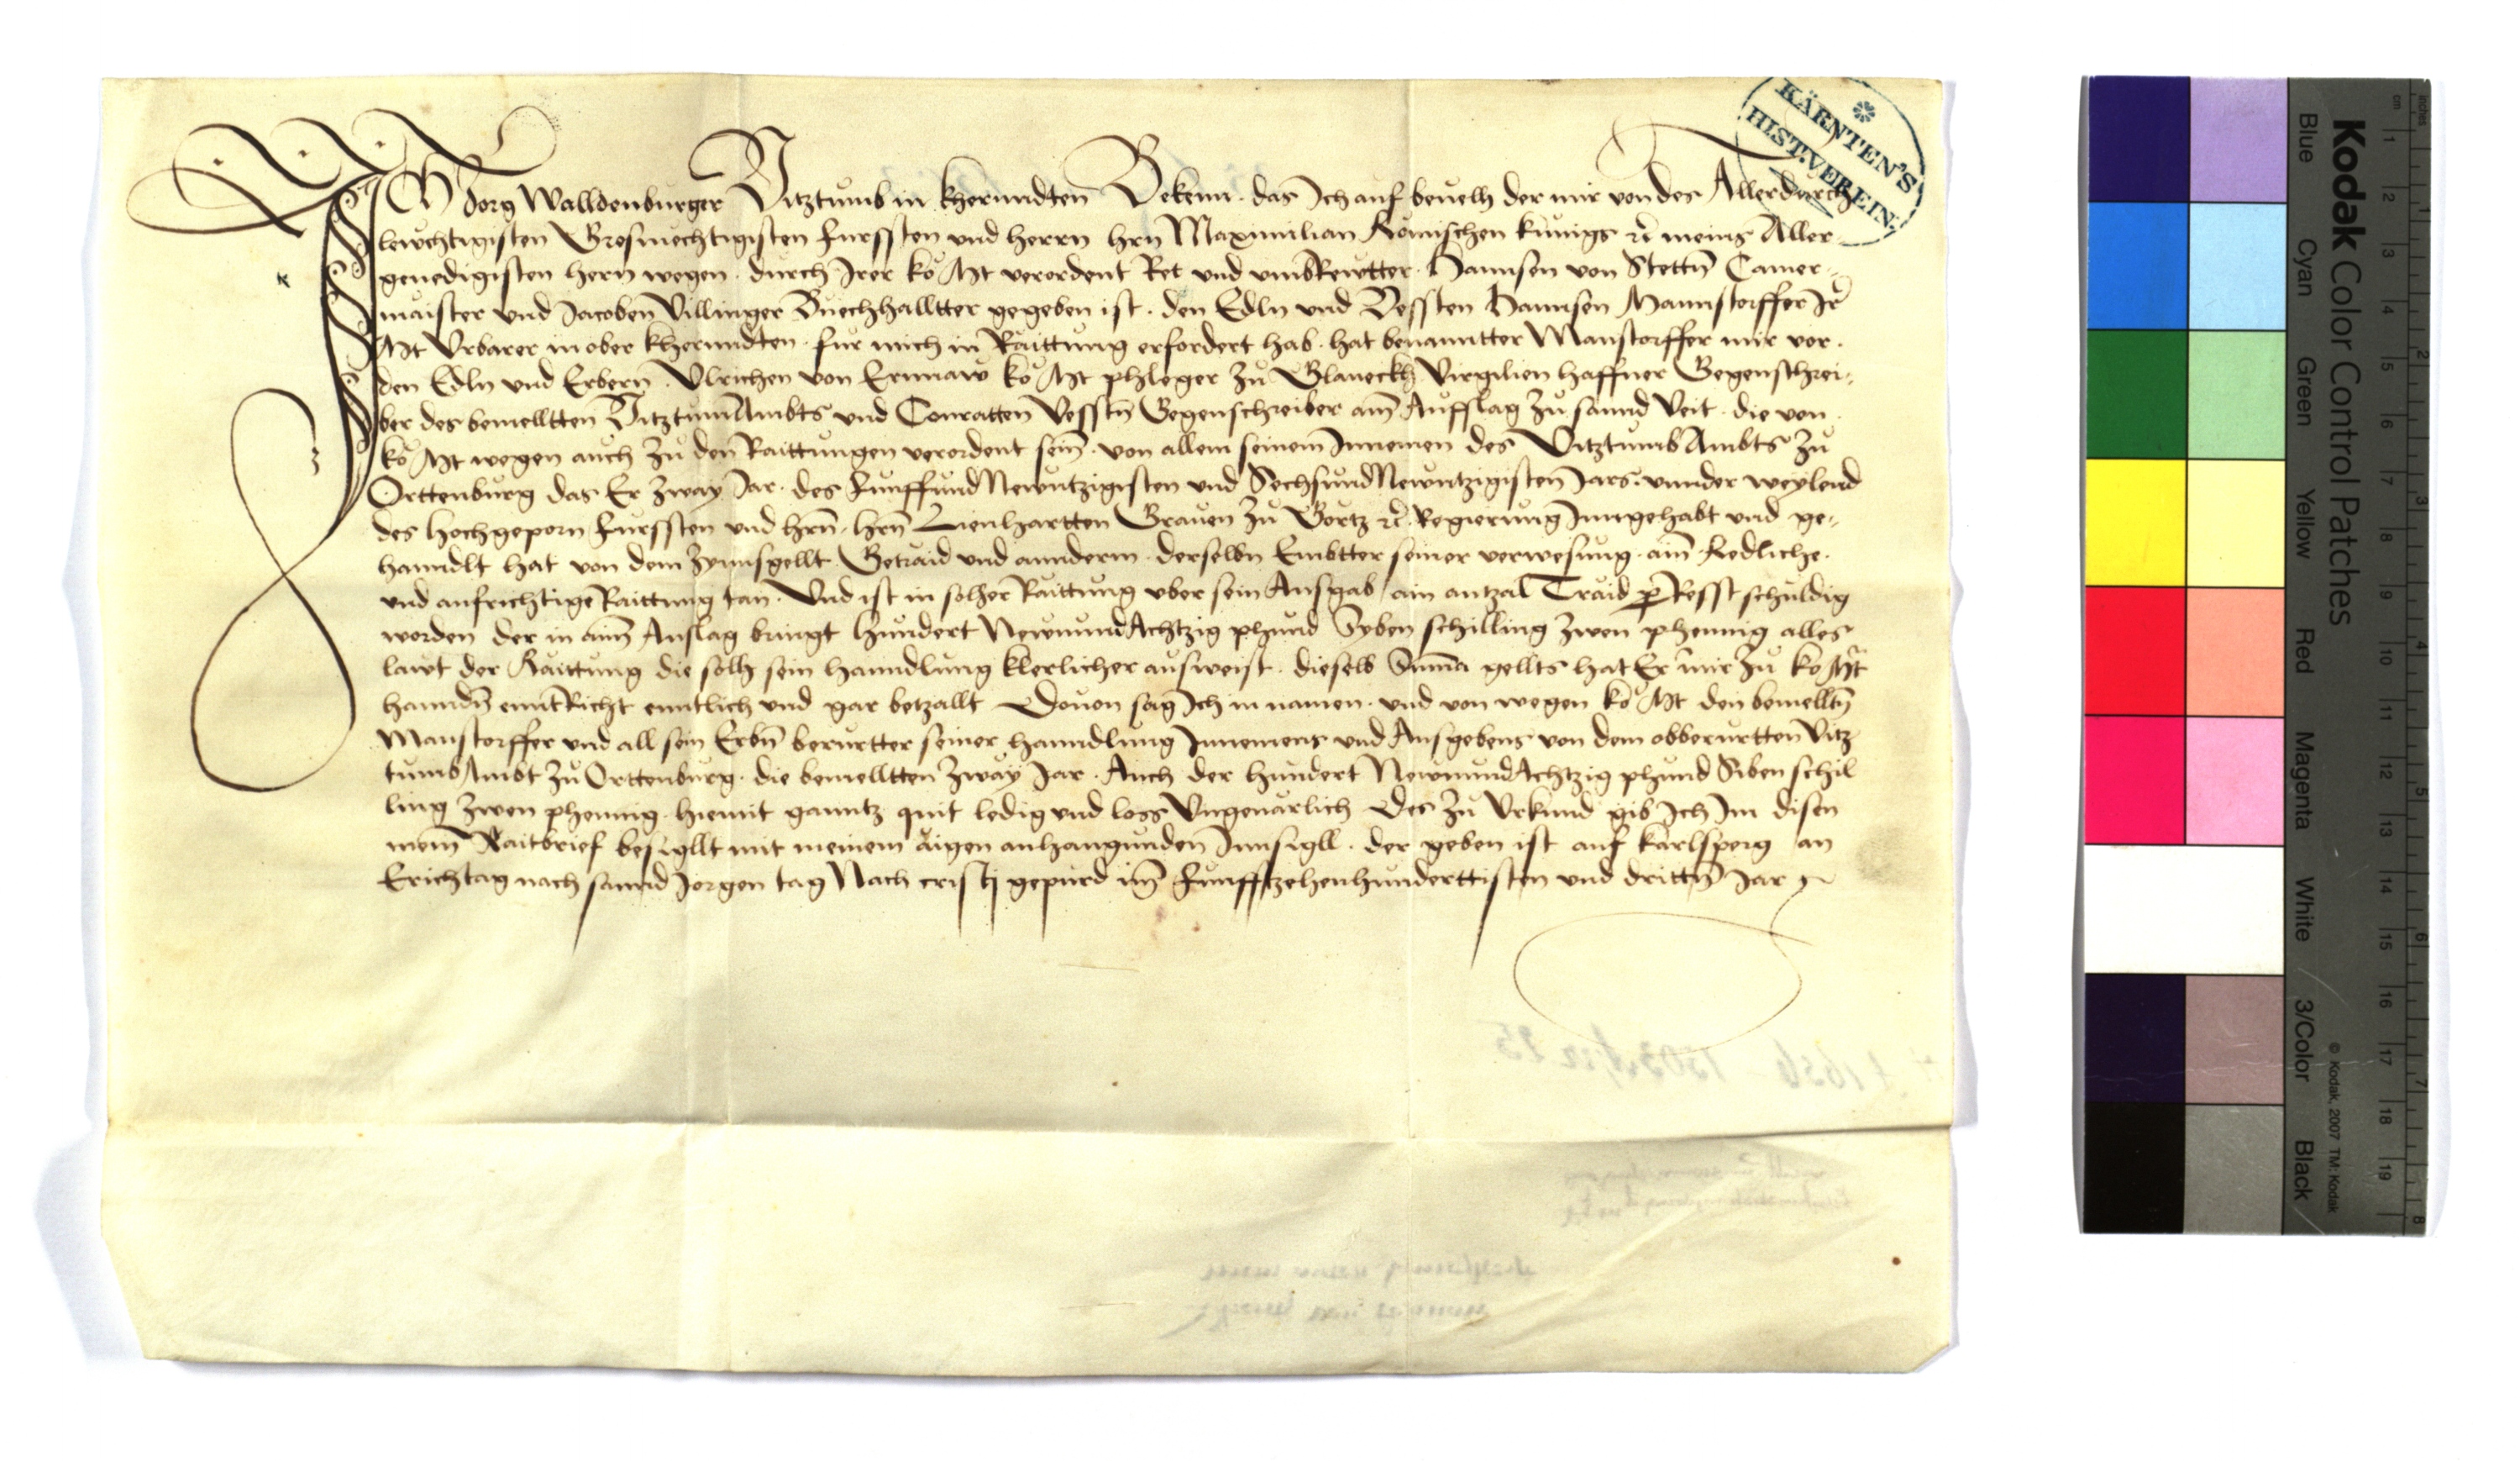 ICh Jorg Walldenburger Vitztumb in kherundten Bekenn . das Ich auf beuelh der mir von des Allerdurch
lewchtigisten Grosmechtigisten Furssten und herrn hrn Maximilian Römischen künigs rc meins Aller
genedigisten hern wegen . durch Irer ko Mt verordent Ret und umbRewtter . Hannsen von Stettn Camer
maister und Jacoben Villinger Buechhalltter gegeben ist . den Edln und Vessten Hannsen Mannstorffer Ir
Mt Urbarer in ober kherundten . für mich in Raittung erfordert hab . hat benanntter Manstorffer mir vor .
den Edln und Erbern . Ulrichen von Ernnaw ko Mt phleger zu Glaneckh Virgilien haffner Gegenschrei
ber des bemelltten VitztumAmbts und Conratten Vesstn Gegenschreiber am Aufslag zu sannd Veit . die von .
ko Mt wegen auch zu den Raittungen verordent sein . von allem seinem Innemen des VitztumbAmbts zu
Orttenburg das Er zway Jar . des FunffundNewntzigisten und SechsundNewntzigisten Jars . unnder weylend
des hochgeporn Furssten und hrn . hrn Lienhartten Grauen zu Gortz rc . Regierung Inngehabt und ge
hanndlt hat von dem Zynnsgellt . Getraid und annderm . derselbn Embtter seiner verwesung . ain Redliche .
und aufrichtige Raittung tan . Und ist in solher Raittung uber sein Ausgab / ain antzal Traid p Resst schuldig
worden der in aim Anslag bringt hundert NewnundAchtzig phund Syben schilling zwen phennig alles
lawt der Raittung die solh sein hanndlung klerlicher ausweist . dieselb Suma gellts hat Er mir zu ko Mt
hanndn enntRicht enntlich und gar betzallt Douon sag Ich in namen . und von wegen ko Mt den bemelltn
Manstorffer und all sein Erbn berurtter seiner hanndlung Innemens und Ausgebens von dem obberurtten Vitz
tumbAmbt zu Orttenburg . die bemelltten zway Jar . Auch der hundert NewnundAchtzig phund Siben schil
ling zwen phennig . hiemit ganntz quit ledig und loss Ungeuärlich Des zu Urkund gib Ich Im disen
mein Raitbrief besigllt mit meinem aigen anhangunden Innsigll . der geben ist auf karlsperg an
Erichtag nach sannd Jorgen tag Nach cristj gepurd im Funfftzehenhunderttisten und drittn Jar
KÄRNTEN'S
HIST.VEREIN.
Kodak Color Control Patches
© Kodak, 2007 TM: Kodak
Blue Cyan Green Yellow Red Magenta White 3/Color Black
cm 1 2 3 4 5 6 7 8 9 10 11 12 13 14 15 16 17 18 19
inches 1 2 3 4 5 6 7 8